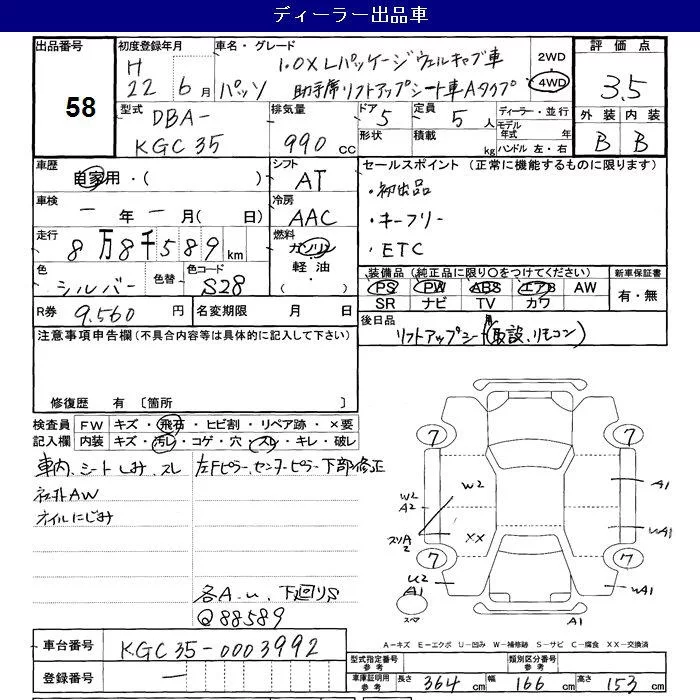 ディーラー出品車
出品番号 58
初度登録年月 H 22年 6月
車名・グレード パッソ 1.0X Lパッケージ ウェルキャブ車
助手席リフトアップシート車Aタイプ
2WD 4WD
評価点 3.5
外装 内装
B B
型式 DBA-
KGC35
排気量 990 cc
ドア 5 形状
定員 5人 積載 kg
ディーラー・並行
モデル年式 年
ハンドル 左・右
車歴 自家用・( )
車検 ー 年 ー 月( 日)
走行 8万8千589km
色 シルバー 色替 色コード S28
シフト AT
冷房 AAC
燃料 ガソリン
軽油
・( )
セールスポイント (正常に機能するものに限ります)
・初出品
・キーフリー
・ETC
装備品(純正品に限り○をつけてください) 新車保証書
PS PW ABS エアB AW 有・無
SR ナビ TV カワ
R券 9.560 円 名変期限 月 日
後日品 リフトアップシート(取説、リモコン)
注意事項申告欄(不具合内容等は具体的に記入して下さい)
修復歴 有 〔箇所 〕
検査員 FW キズ・飛石・ヒビ割・リペア跡・×要
記入欄 内装 キズ・汚レ・コゲ・穴・スレ・キレ・破レ
車内、シートしみ、スレ
オイルにじみ
左Fピラー、センターピラー下部修正
各A-u、下廻りS
Q 88589
7 7
7 7
W2
W2
A2
A2
XX
U2
A1
UA1
UA1
A1
スペア
車台番号 KGC35-0003992
登録番号 ー
A-キズ E-エクボ U-凹み W-補修跡 S-サビ C-腐食 XX-交換済
型式指定番号 参考 類別区分番号 参考
車庫証明用 参考 長さ 364cm 幅 166cm 高さ 153cm